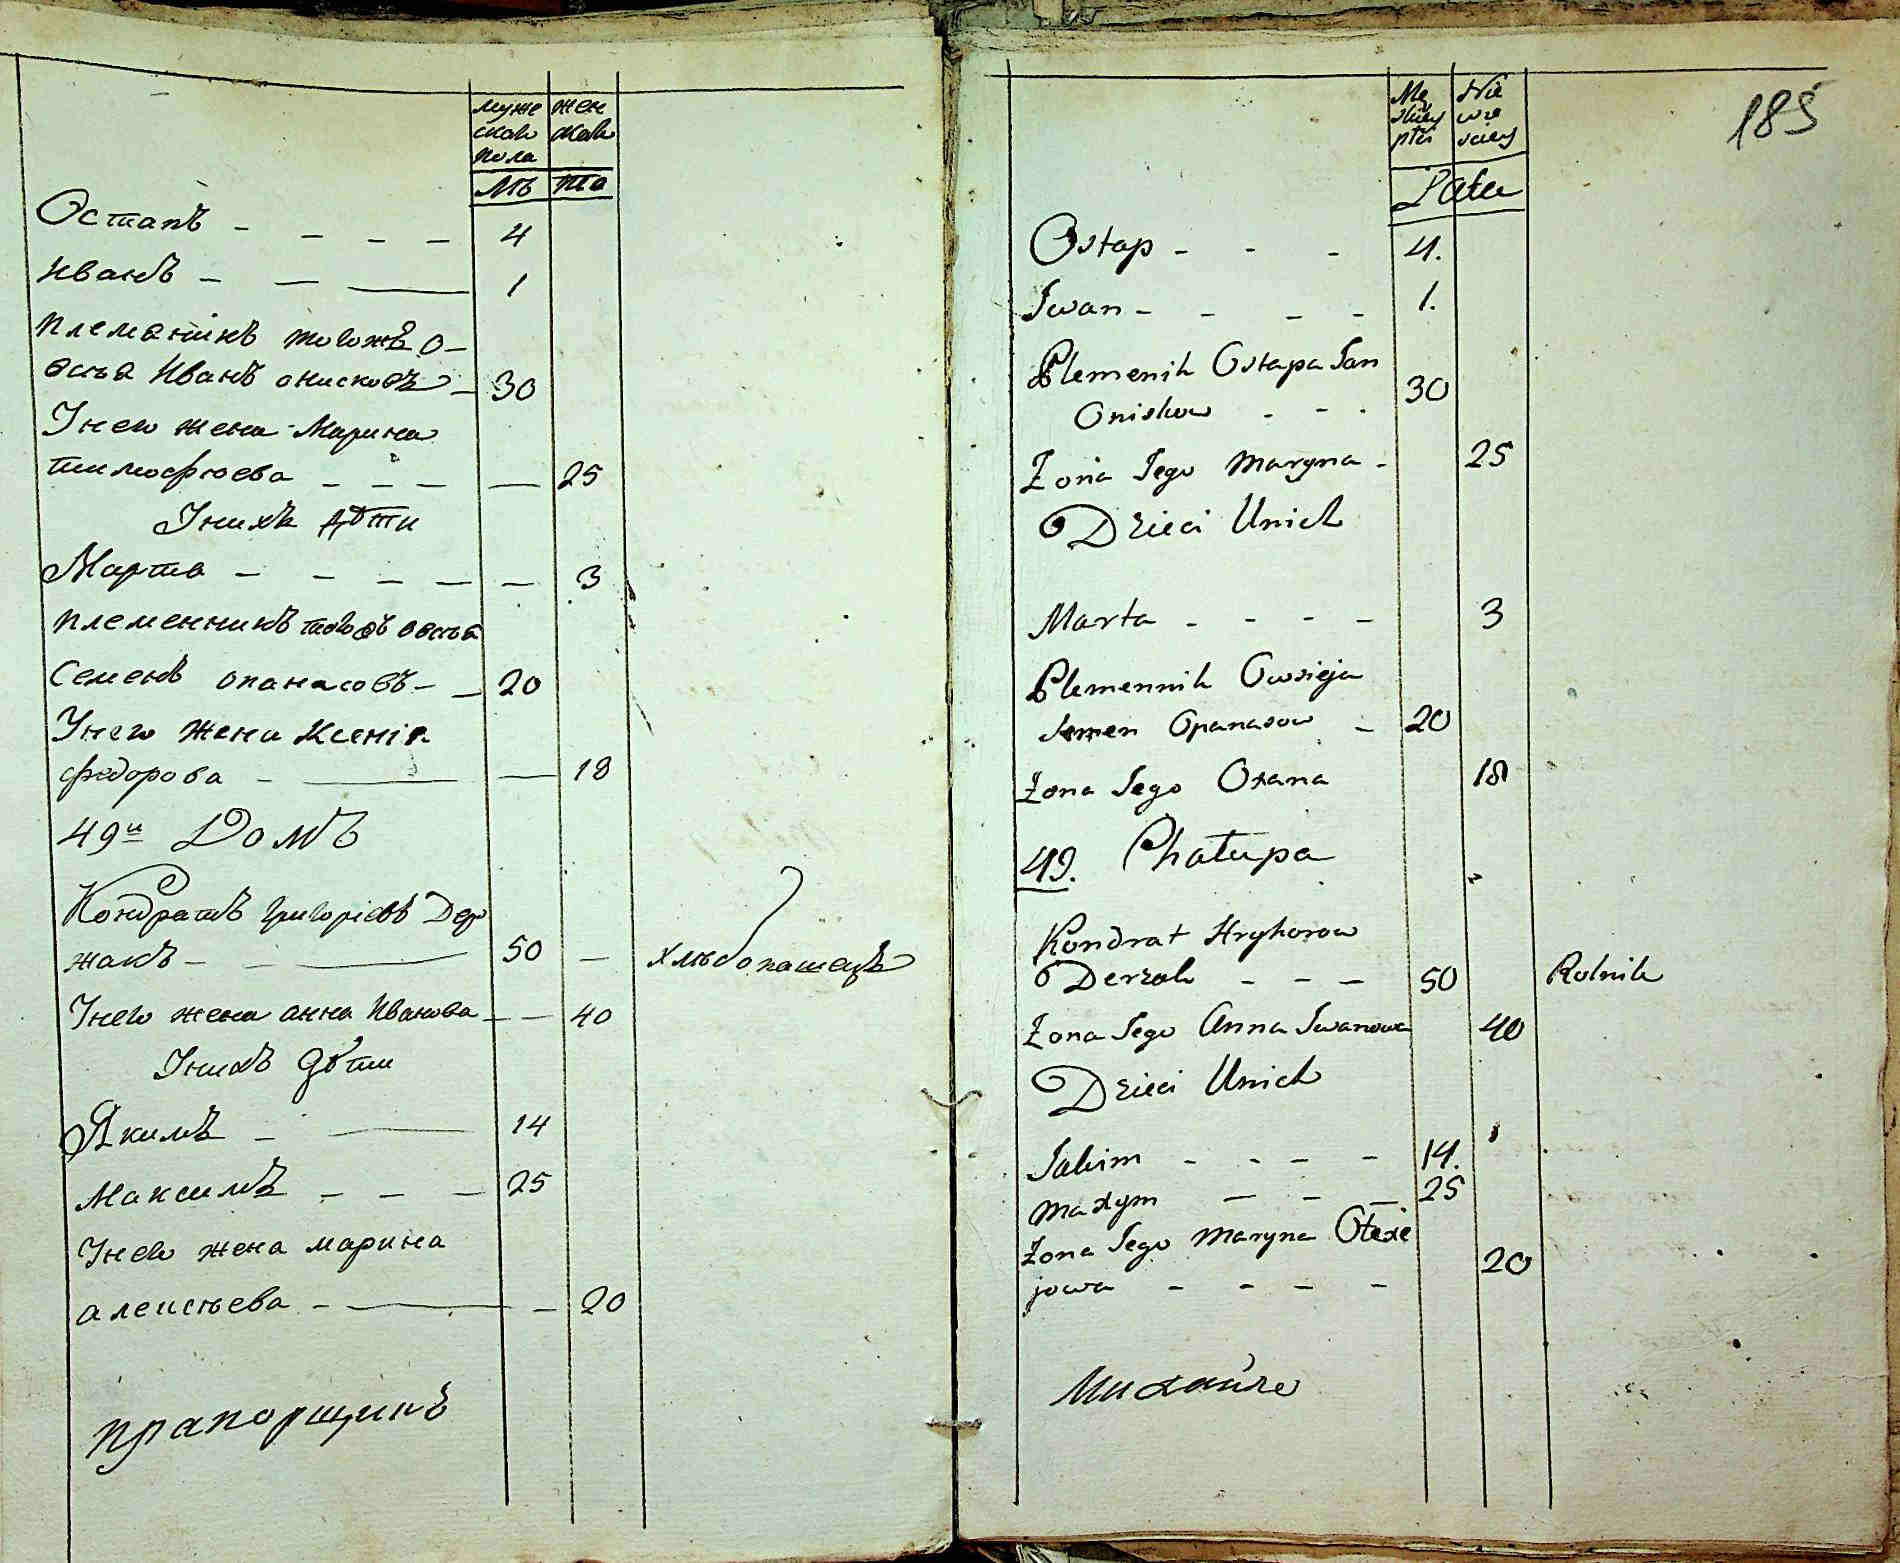 муже
скаго
пола
жен
скаго
лѣ
та
Остапъ - - - - 4
Иванъ - - - 1
племянникъ тогожъ о-
всѣя Иванъ онисковъ - 30
Унего жена Марина
тимофѣева - - - - 25
Унихъ дѣти
Марта - - - - - 3
племенникъ тогожъ овсѣя
Семенъ опанасовъ - - 20
Унего жена Ксенія
федорова - - - 18
49й Домъ
Кондратъ григоріевъ Дер
жакъ - - - 50 - хлѣбопашецъ
Унего жена анна Иванова - - 40
Унихъ дѣти
Якимъ - - 14
Максимъ - - - 25
Унего жена марина
алексѣева - - - 20
прапорщикъ
185
Mę
skiey
płci
Nie
wie
sciey
Lata
Ostap - - - 4.
Iwan - - - - 1.
Plemenik Ostapa Jan
Oniskow - - - 30
Żona Jego Maryna - 25
Dzieci Unich
Marta - - - - 3
Plemennik Owsieja
Semen Opanasow - 20
Żona Jego Oxana 18
49. Chałupa
Kondrat Hryhorow
Derzak - - - 50 Rolnik
Żona Jego Anna Iwanowa 40
Dzieci Unich
Jakim - - - - 14.
Maxym - - - 25
Żona Jego Maryna Ołexie
jowa - - - - 20